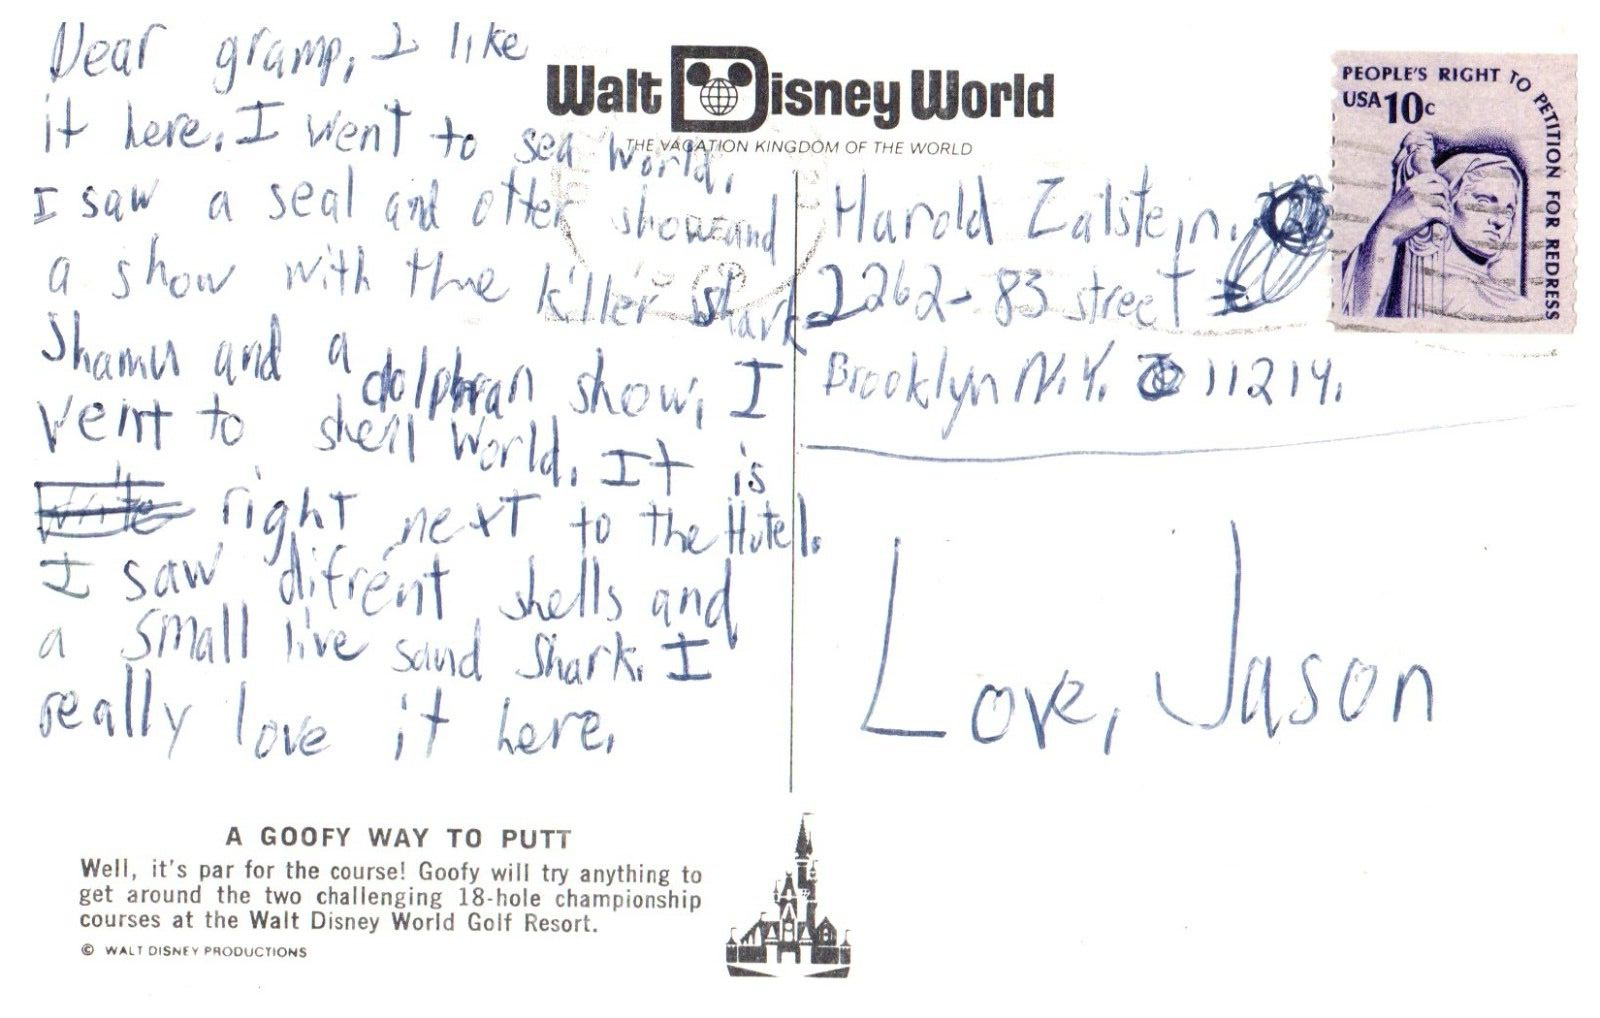 Dear gramp, I like
it here. I went to sea World.
I saw a seal and otter show and
a show with the killer shark
Shamu and a dolphran show, I
vent to shell World. It is
right next to the Hotel.
I saw difrent shells and
a small live sand Shark. I
really love it here.
Walt Disney World
THE VACATION KINGDOM OF THE WORLD
PEOPLE'S RIGHT TO PETITION FOR REDRESS
USA 10c
Harold Zalstein.
2262- 83 street
Brooklyn N.Y. 11214.
Love, Jason
A GOOFY WAY TO PUTT
Well, it's par for the course! Goofy will try anything to
get around the two challenging 18-hole championship
courses at the Walt Disney World Golf Resort.
© WALT DISNEY PRODUCTIONS